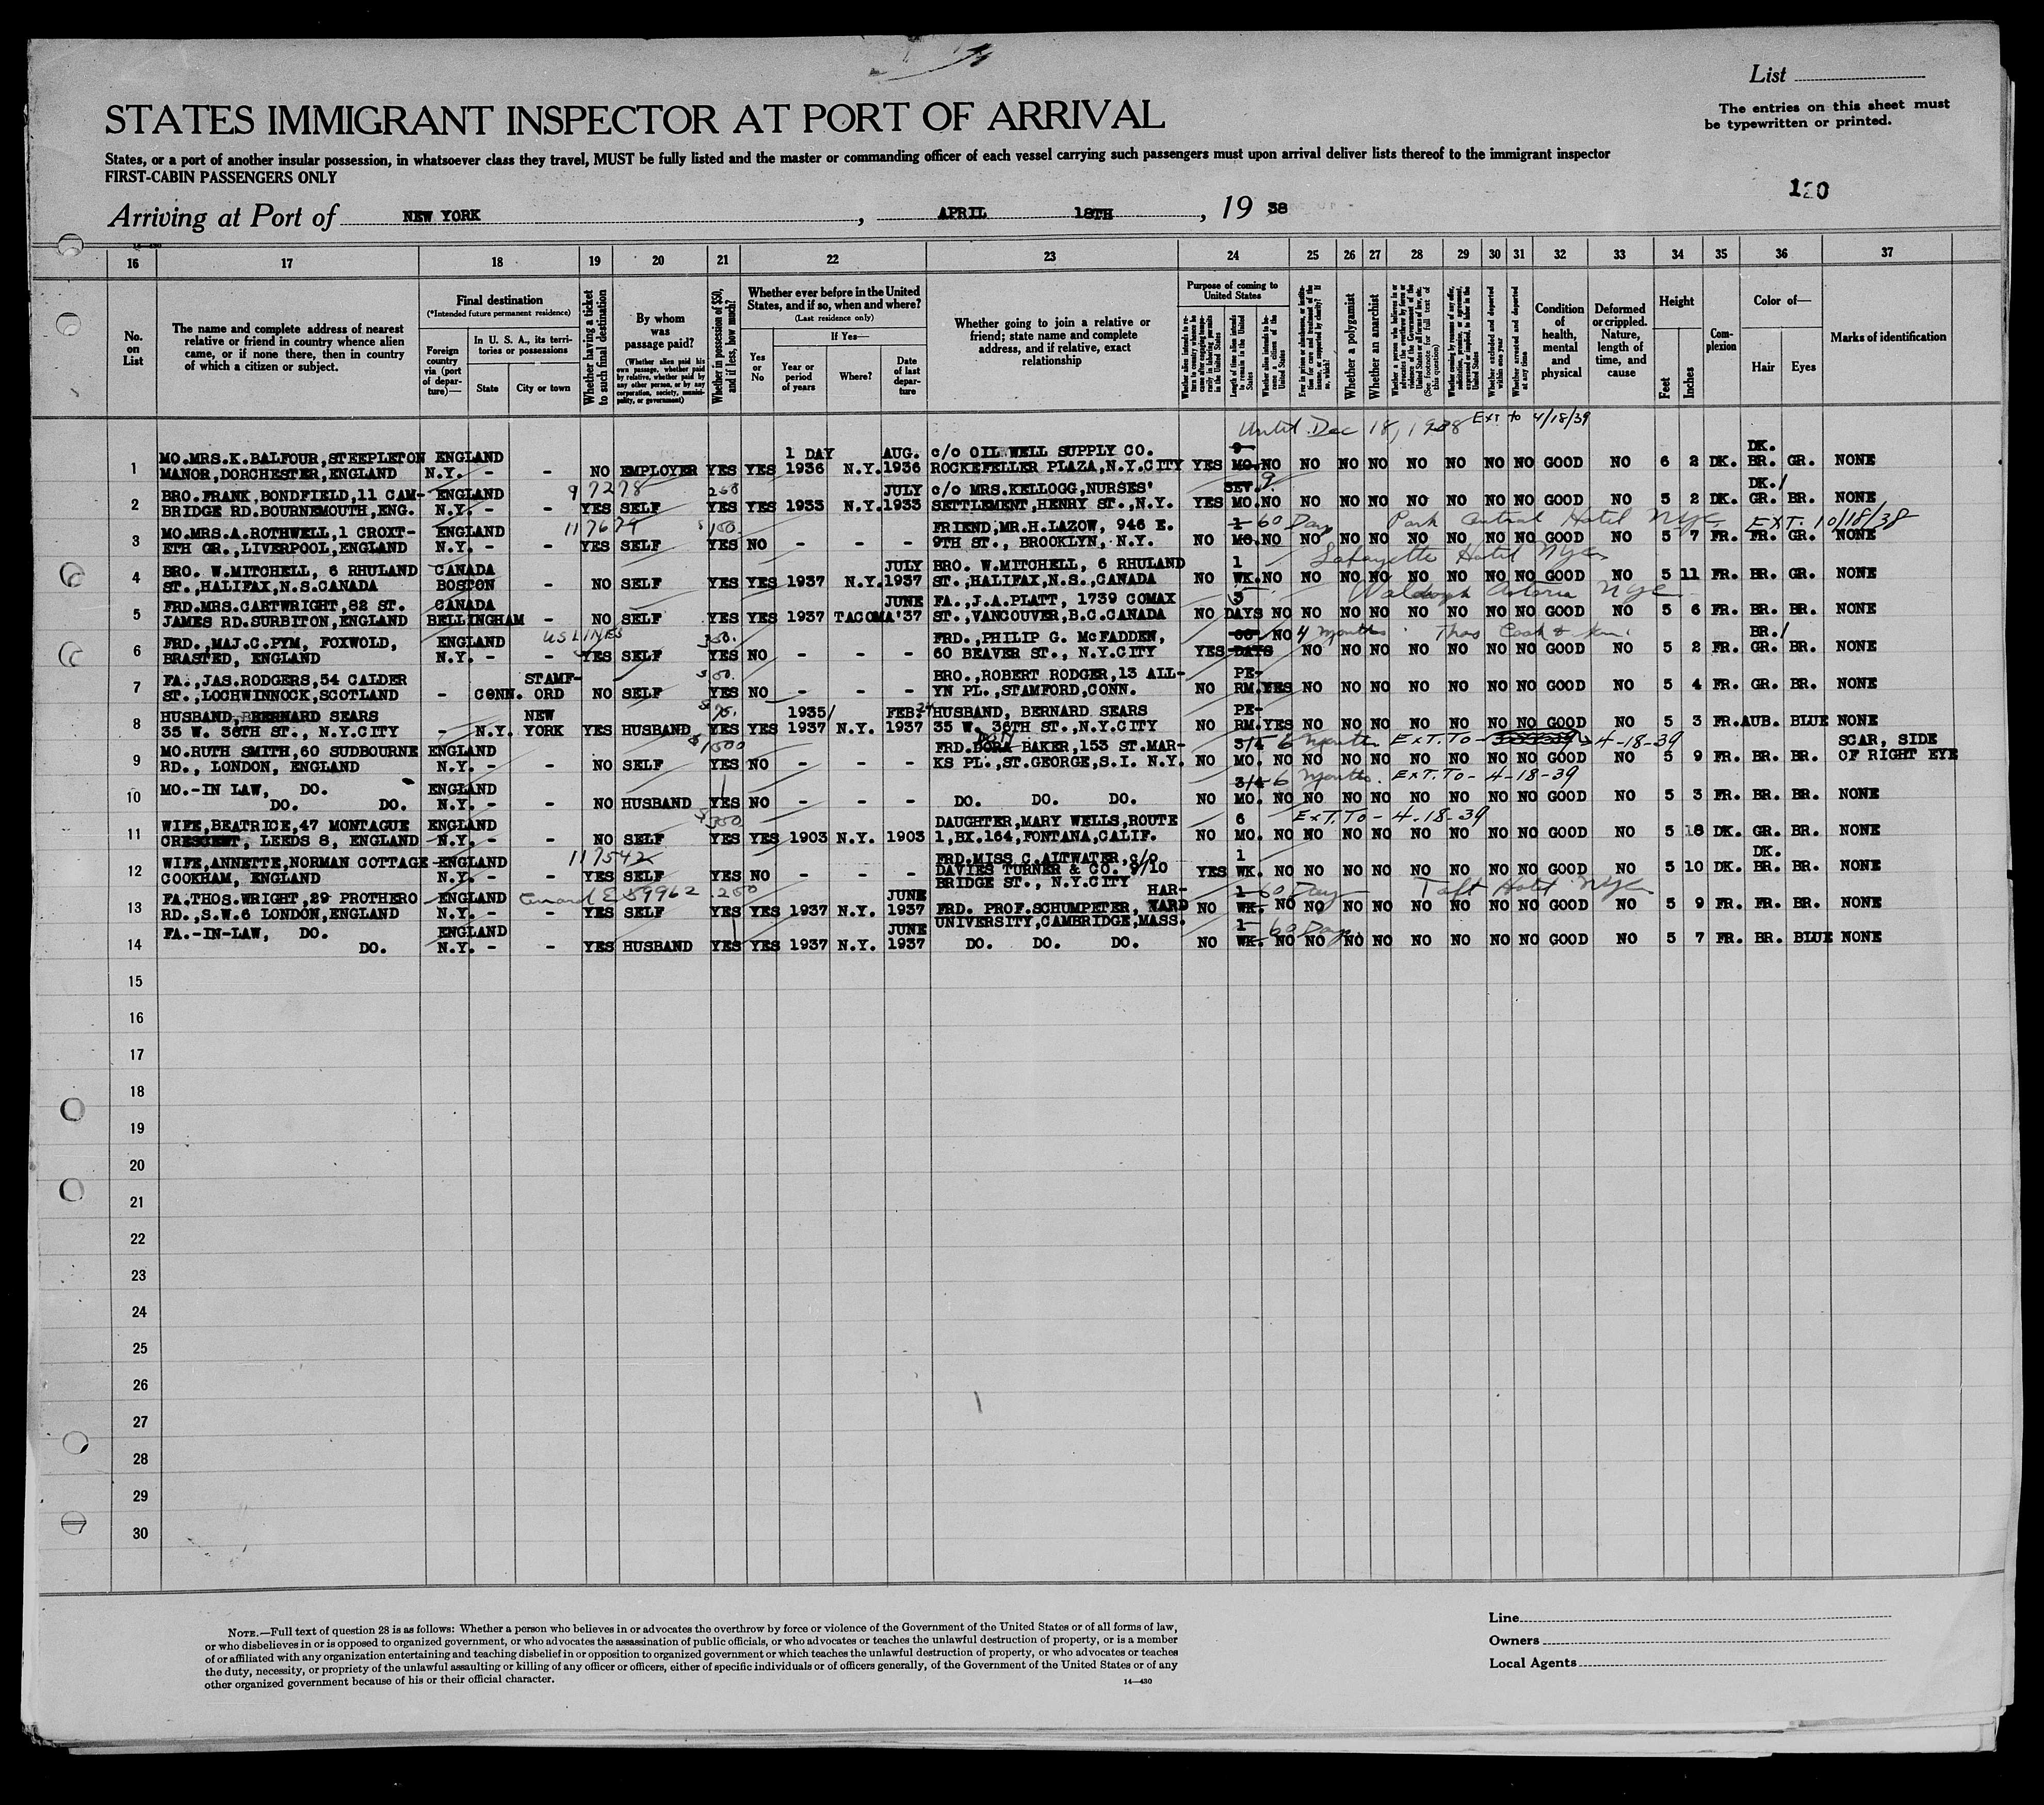 List
STATES IMMIGRANT INSPECTOR AT PORT OF ARRIVAL
The entries on this sheet must
be typewritten or printed.
States, or a port of another insular possession, in whatsoever class they travel, MUST be fully listed and the master or commanding officer of each vessel carrying such passengers must upon arrival deliver lists thereof to the immigrant inspector
FIRST-CABIN PASSENGERS ONLY
120
Arriving at Port of NEW YORK, APRIL 18TH, 19 38
16 17 18 19 20 21 22 23 24 25 26 27 28 29 30 31 32 33 34 35 36 37
No. on List
The name and complete address of nearest relative or friend in country whence alien came, or if none there, then in country of which a citizen or subject.
Final destination
(*Intended future permanent residence)
Foreign country via (port of departure)—
In U. S. A., its territories or possessions
State
City or town
Whether having a ticket to such final destination
By whom was passage paid?
(Whether alien paid his own passage, whether paid by relative, whether paid by any other person, or by any corporation, society, municipality, or government)
Whether in possession of $50, and if less, how much?
Whether ever before in the United States, and if so, when and where?
(Last residence only)
Yes or No
If Yes—
Year or period of years
Where?
Date of last departure
Whether going to join a relative or friend; state name and complete address, and if relative, exact relationship
Purpose of coming to United States
Length of time alien intends to remain in the United States
Whether alien intends to become a citizen of the United States
Whether a polygamist
Whether an anarchist
Whether excluded and deported within one year
Whether arrested and deported at any time
Condition of health, mental and physical
Deformed or crippled. Nature, length of time, and cause
Height
Feet
Inches
Complexion
Color of—
Hair
Eyes
Marks of identification
Until Dec 18, 1938 Ext to 4/18/39
MO.MRS.K.BALFOUR,STEEPLETON ENGLAND 1 DAY AUG. c/o OIL WELL SUPPLY CO. 9 DK.
1 MANOR,DORCHESTER,ENGLAND N.Y. - - NO EMPLOYER YES YES 1936 N.Y. 1936 ROCKEFELLER PLAZA,N.Y.CITY YES MO. NO NO NO NO NO NO NO NO GOOD NO 6 2 DK. BR. GR. NONE
BRO.FRANK,BONDFIELD,11 CAM- ENGLAND 97278 250 JULY c/o MRS.KELLOGG,NURSES' 9 DK./
2 BRIDGE RD.BOURNEMOUTH,ENG. N.Y. - - YES SELF YES YES 1933 N.Y. 1933 SETTLEMENT,HENRY ST.,N.Y. YES MO. NO NO NO NO NO NO NO NO GOOD NO 5 2 DK. GR. BR. NONE
MO.MRS.A.ROTHWELL,1 CROXT- ENGLAND 117679 $150 FRIEND,MR.H.LAZOW, 946 E. 1 60 Days Park Central Hotel NYC EXT. 10/18/38
3 ETH GR.,LIVERPOOL,ENGLAND N.Y. - - YES SELF YES NO - - - 9TH ST., BROOKLYN, N.Y. NO MO. NO NO NO NO NO NO NO NO GOOD NO 5 7 FR. FR. GR. NONE
BRO. W.MITCHELL, 6 RHULAND CANADA JULY BRO. W.MITCHELL, 6 RHULAND 1 Lafayette Hotel NYC
4 ST.,HALIFAX,N.S.CANADA BOSTON - NO SELF YES YES 1937 N.Y. 1937 ST.,HALIFAX,N.S.,CANADA NO WK. NO NO NO NO NO NO NO NO GOOD NO 5 11 FR. BR. GR. NONE
FRD.MRS.CARTWRIGHT,82 ST. CANADA JUNE FA.,J.A.PLATT, 1739 COMAX 3 Waldorf Astoria NYC
5 JAMES RD.SURBITON,ENGLAND BELLINGHAM - NO SELF YES YES 1937 TACOMA '37 ST.,VANCOUVER,B.C.CANADA NO DAYS NO NO NO NO NO NO NO NO GOOD NO 5 6 FR. BR. BR. NONE
FRD.,MAJ.C.PYM, FOXWOLD, ENGLAND US LINES 350. FRD.,PHILIP G. McFADDEN, 60 NO 4 months Thos Cook & Son. BR./
6 BRASTED, ENGLAND N.Y. - - YES SELF YES NO - - - 60 BEAVER ST., N.Y.CITY YES DAYS NO NO NO NO NO NO NO GOOD NO 5 2 FR. GR. BR. NONE
FA.,JAS.RODGERS,54 CALDER STAMF- BRO.,ROBERT RODGER,13 ALL- PE-
7 ST.,LOCHWINNOCK,SCOTLAND - CONN. ORD NO SELF YES NO - - - YN PL.,STAMFORD,CONN. NO RM. YES NO NO NO NO NO NO NO GOOD NO 5 4 FR. GR. BR. NONE
HUSBAND, BERNARD SEARS NEW 1935/ FEB. 24 HUSBAND, BERNARD SEARS PE-
8 35 W. 36TH ST., N.Y.CITY - N.Y. YORK YES HUSBAND YES YES 1937 N.Y. 1937 35 W. 36TH ST.,N.Y.CITY NO RM. YES NO NO NO NO NO NO NO GOOD NO 5 3 FR. AUB. BLUE NONE
MO.RUTH SMITH,60 SUDBOURNE ENGLAND $1500 FRD.DORA BAKER,153 ST.MAR- 3/4 6 months EXT. TO- 4-18-39 SCAR, SIDE
9 RD., LONDON, ENGLAND N.Y. - - NO SELF YES NO - - - KS PL.,ST.GEORGE,S.I. N.Y. NO MO. NO NO NO NO NO NO NO NO GOOD NO 5 9 FR. BR. BR. OF RIGHT EYE
MO.-IN LAW, DO. ENGLAND 3/4 6 months. EXT. TO- 4-18-39
10 DO. DO. N.Y. - - NO HUSBAND YES NO - - - DO. DO. DO. NO MO. NO NO NO NO NO NO NO NO GOOD NO 5 3 FR. BR. BR. NONE
WIFE,BEATRICE,47 MONTAGUE ENGLAND DAUGHTER,MARY WELLS,ROUTE 6 EXT. TO- 4.18-39
11 CRESCENT, LEEDS 8, ENGLAND N.Y. - - NO SELF YES YES 1903 N.Y. 1903 1,BX.164,FONTANA,CALIF. NO MO. NO NO NO NO NO NO NO NO GOOD NO 5 DK. GR. BR. NONE
WIFE,ANNETTE,NORMAN COTTAGE ENGLAND 117542 FRD.MISS C.ALTWATER,c/o 1 DK.
12 COOKHAM, ENGLAND N.Y. - - YES SELF YES NO - - - DAVIES TURNER & CO. 9/10 YES WK. NO NO NO NO NO NO NO NO GOOD NO 5 10 DK. BR. BR. NONE
BRIDGE ST., N.Y.CITY
FA.THOS.WRIGHT,29 PROTHERO ENGLAND Cunard E 59962 250 JUNE HAR- 1 60 Days Taft Hotel NYC
13 RD.,S.W.6 LONDON,ENGLAND N.Y. - - YES SELF YES YES 1937 N.Y. 1937 FRD. PROF.SCHUMPETER, VARD NO WK. NO NO NO NO NO NO NO NO GOOD NO 5 9 FR. FR. BR. NONE
UNIVERSITY,CAMBRIDGE,MASS.
FA.-IN-LAW, DO. ENGLAND JUNE 1 60 Days
14 DO. N.Y. - - YES HUSBAND YES YES 1937 N.Y. 1937 DO. DO. DO. NO WK. NO NO NO NO NO NO NO NO GOOD NO 5 7 FR. BR. BLUE NONE
15
16
17
18
19
20
21
22
23
24
25
26
27
28
29
30
NOTE.—Full text of question 28 is as follows: Whether a person who believes in or advocates the overthrow by force or violence of the Government of the United States or of all forms of law,
or who disbelieves in or is opposed to organized government, or who advocates the assassination of public officials, or who advocates or teaches the unlawful destruction of property, or is a member
of or affiliated with any organization entertaining and teaching disbelief in or opposition to organized government or which teaches the unlawful destruction of property, or who advocates or teaches
the duty, necessity, or propriety of the unlawful assaulting or killing of any officer or officers, either of specific individuals or of officers generally, of the Government of the United States or of any
other organized government because of his or their official character.
14—430
Line
Owners
Local Agents